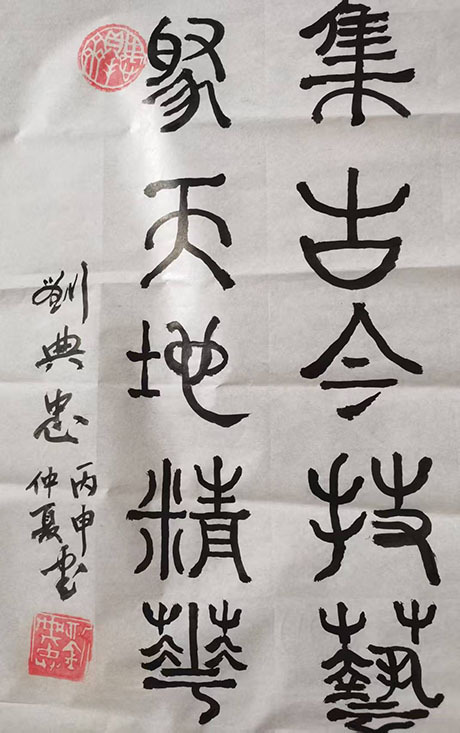 集古今技藝
聚天地精華
劉典忠
丙申
仲夏書